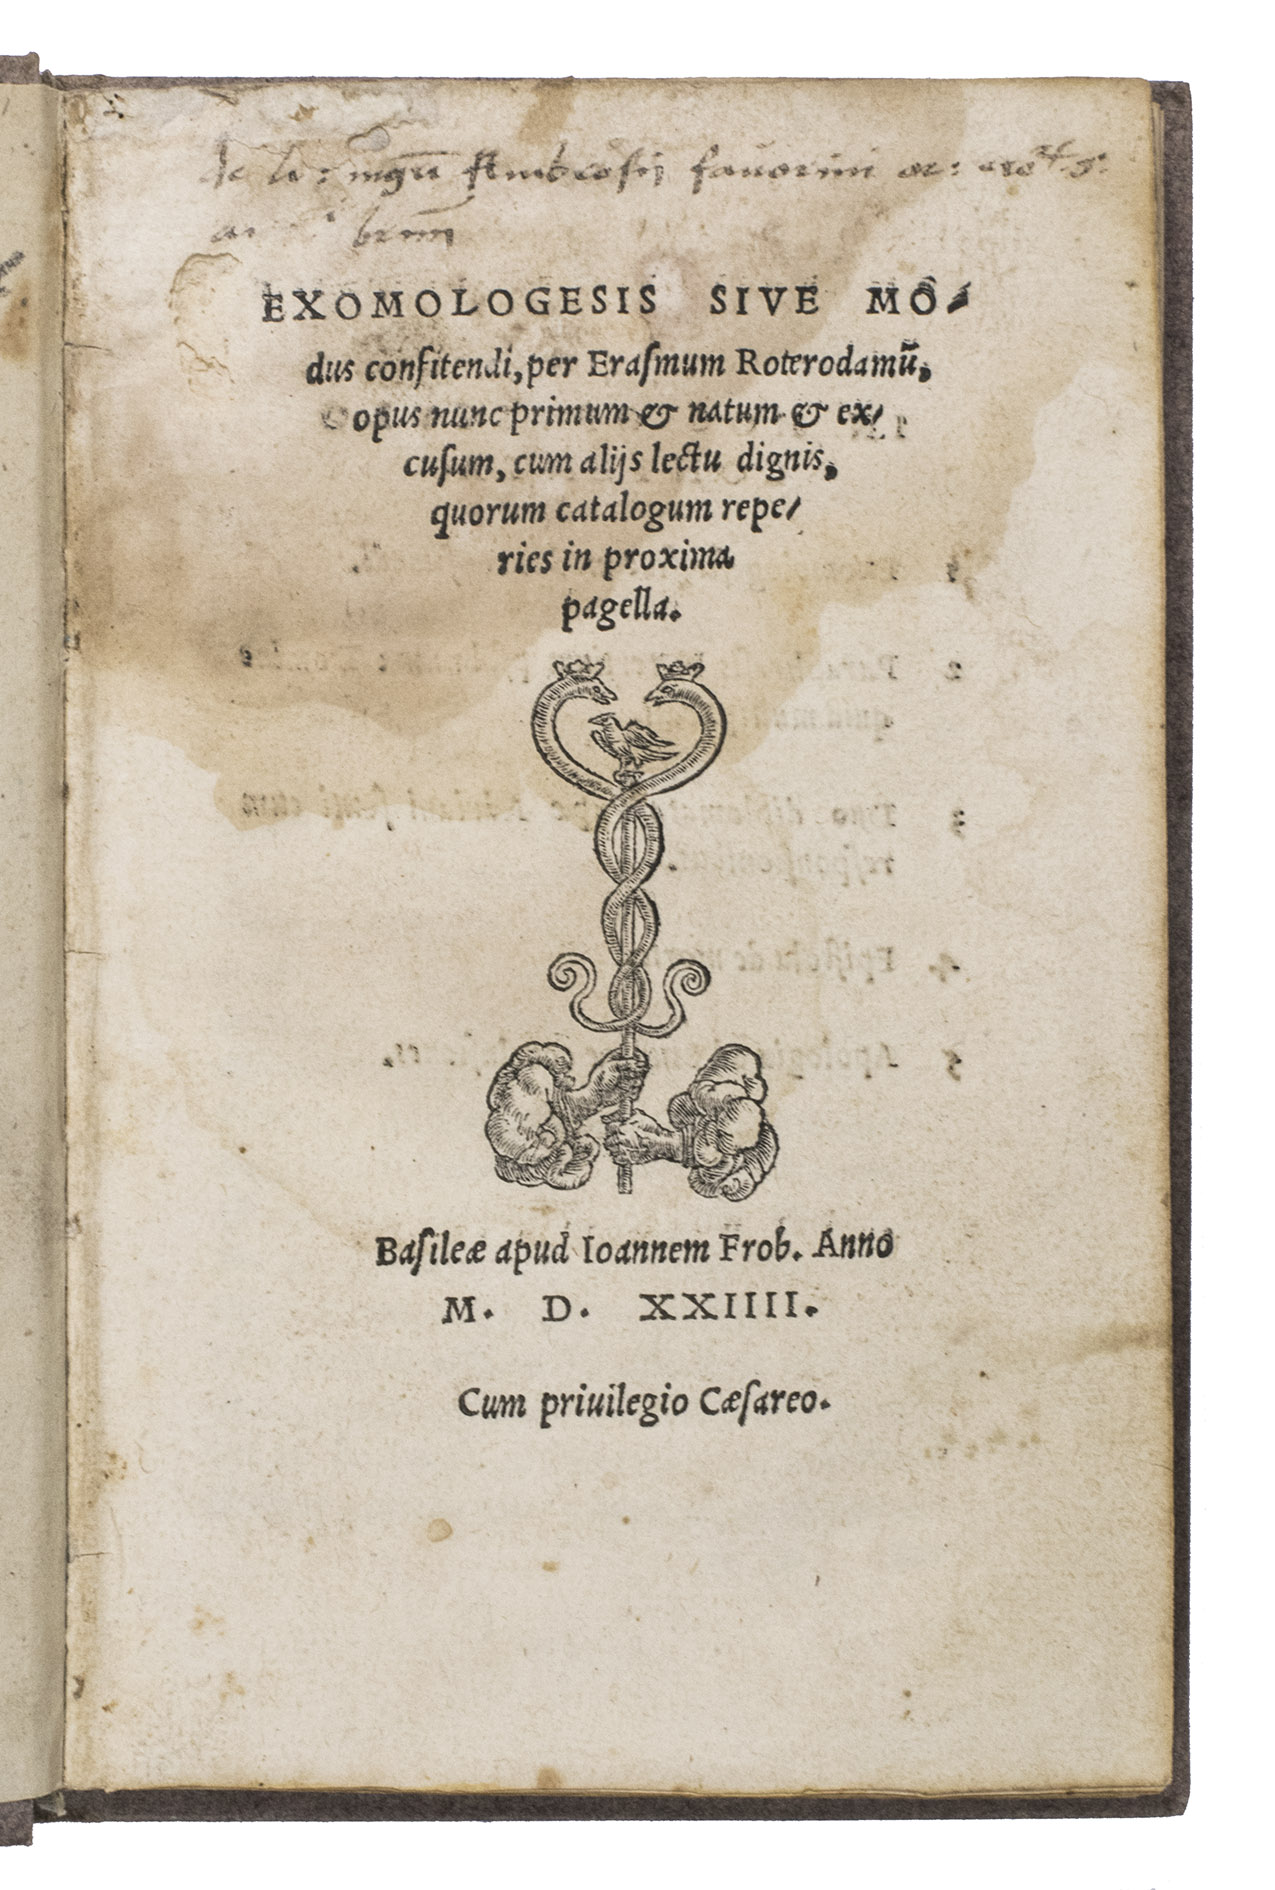 Ambrosij fauorini
EXOMOLOGESIS SIVE MO⸗
dus confitendi, per Eraſmum Roterodamū,
opus nunc primum & natum & ex⸗
cuſum, cum alijs lectu dignis,
quorum catalogum repe⸗
ries in proxima
pagella.
Baſileæ apud Ioannem Frob. Anno
M. D. XXIIII.
Cum priuilegio Cæſareo.